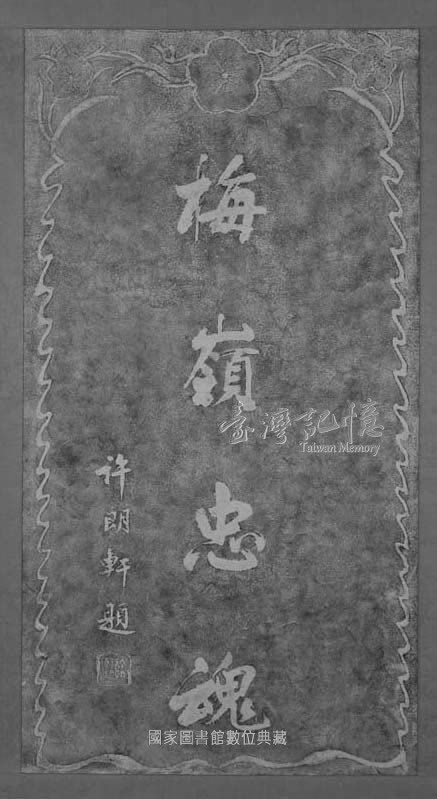 梅嶺忠魂
許朗軒題
臺灣記憶
Taiwan Memory
國家圖書館數位典藏